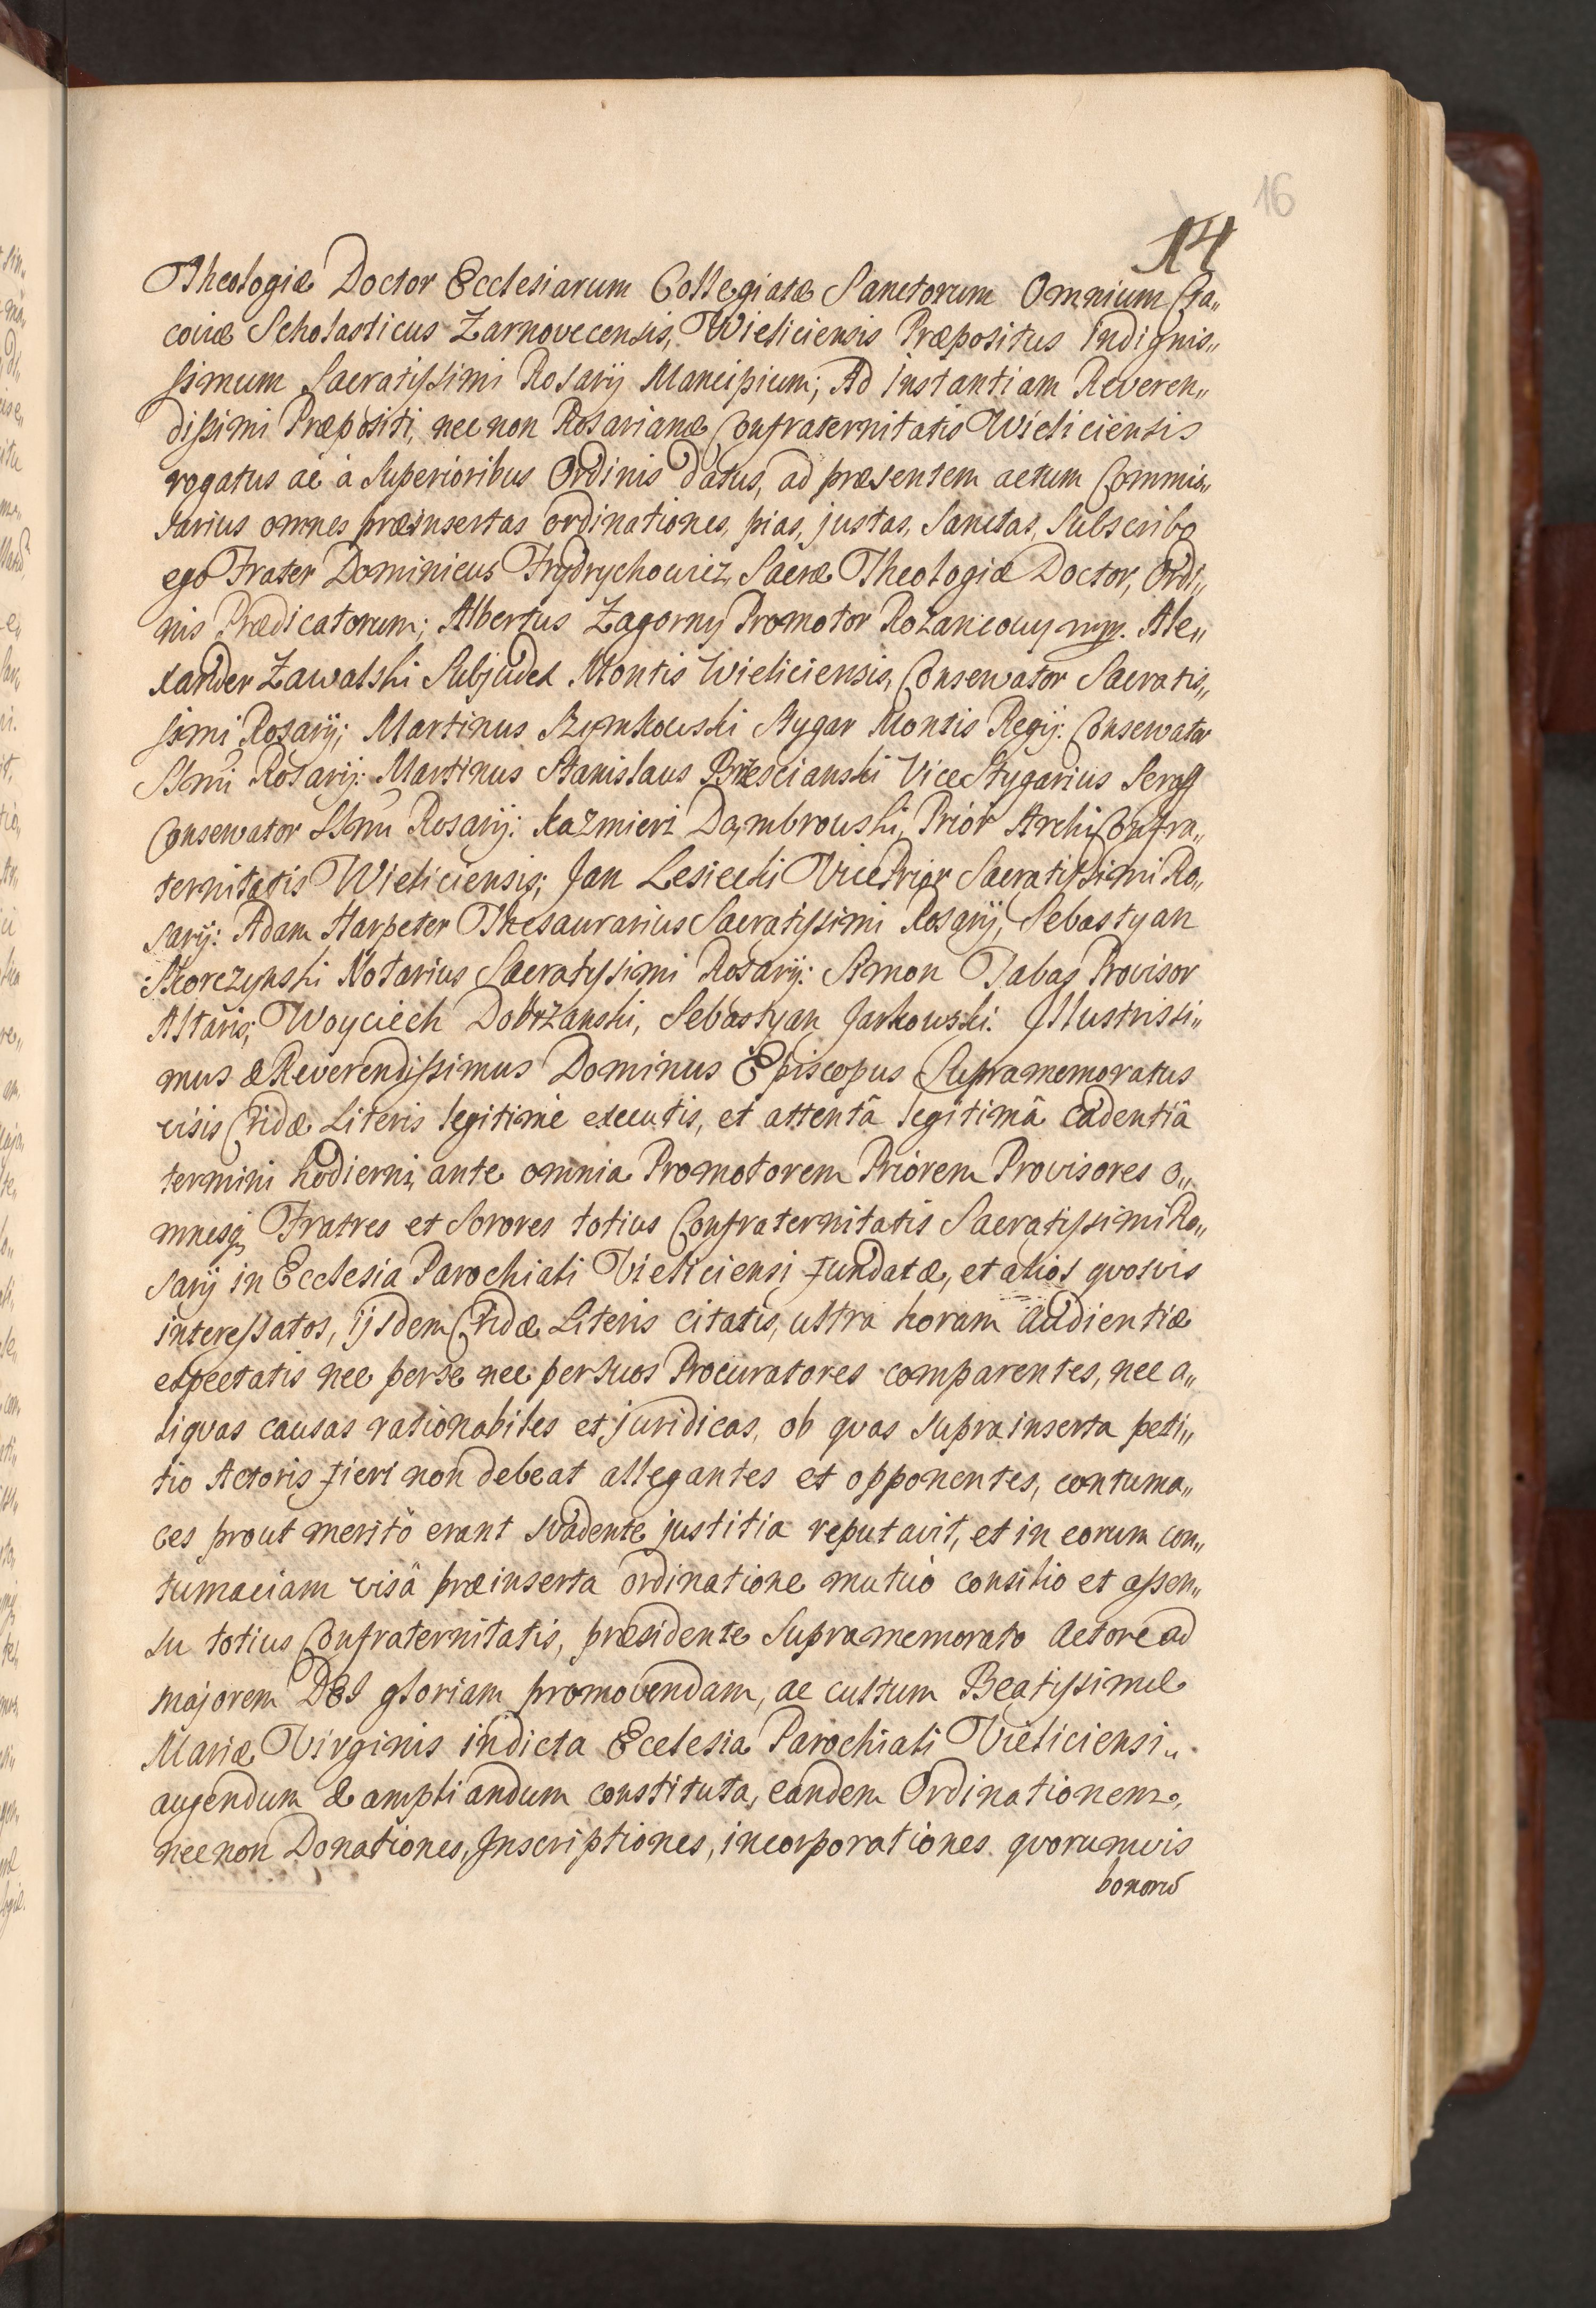 16
14
Theologiæ Doctor Ecclesiarum Collegiatæ Sanctorum Omnium Cra„
coviæ Scholasticus Zarnovecensis, Wieliciensis Præpositus indignis„
simum Sacratissimi Rosarij Mancipium; Ad instantiam Reveren„
dissimi Præpositi, nec non Rosarianæ Confraternitatis Wieliciensis
rogatus ac à Superioribus Ordinis datus, ad præsentem actum Commis„
sarius omnes præinsertas ordinationes, pias, justas, Sanctas, Subscribo
ego Frater Dominicus Frydrychowicz, Sacræ Theologiæ Doctor, Ordi„
nis Prædicatorum; Albertus Zagorny Promotor Rożancowy mpp. Ale„
xander Zawatski Subjudex Montis Wieliciensis, Conservator Sacratis„
simi Rosarij; Martinus Szymkowski Stygar Montis Regij: Conservator
SSmi Rosarij: Martinus Stanislaus Brzescianski ViceStygarius Seraff
Conservator SSmi Rosarij: Kazmierz Dąmbrowski, Prior ArchiConfra„
ternitatis Wieliciensis; Jan Lesiecki VicePrior Sacratissimi Ro„
sarij: Adam Harpeter Thesaurarius Sacratissimi Rosarij, Sebastyan
Skorczynski Notarius Sacratissimi Rosarij: Simon Tabas Provisor
Altaris; Woyciech Dobrzanski, Sebastyan Jarkowski. Illustrissi„
mus & Reverendissimus Dominus Episcopus Supramemoratus
visis Cridæ Literis legitimè executis, et attentâ legitimâ cadentiâ
termini hodierni, ante omnia Promotorem Priorem Provisores o„
mnesq₃ Fratres et Sorores totius Confraternitatis Sacratissimi Ro„
sarij in Ecclesia Parochiali Vieliciensi fundatæ, et alios quosvis
interessatos, ijsdem Cridæ Literis citatis, ultra horam audientiæ
expectatis nec per se nec per suos Procuratores comparentes, nec a„
liquas causas rationabiles et juridicas, ob quas suprainserta peti„
tio Actoris fieri non debeat allegantes et opponentes, contuma„
ces prout meritò erant svadente justitia reputavit, et in eorum con„
tumaciam visâ præinserta ordinatione mutuò consilio et assen„
su totius Confraternitatis, præsidente Supramemorato Actore ad
majorem DEI gloriam promovendam, ac cultum Beatissimæ
Mariæ Virginis in dicta Ecclesia Parochiali Vieliciensi„
augendum & ampliandum constituta, eandem Ordinationem,
nec non Donationes, Inscriptiones, incorporationes quorumvis
bonorũ